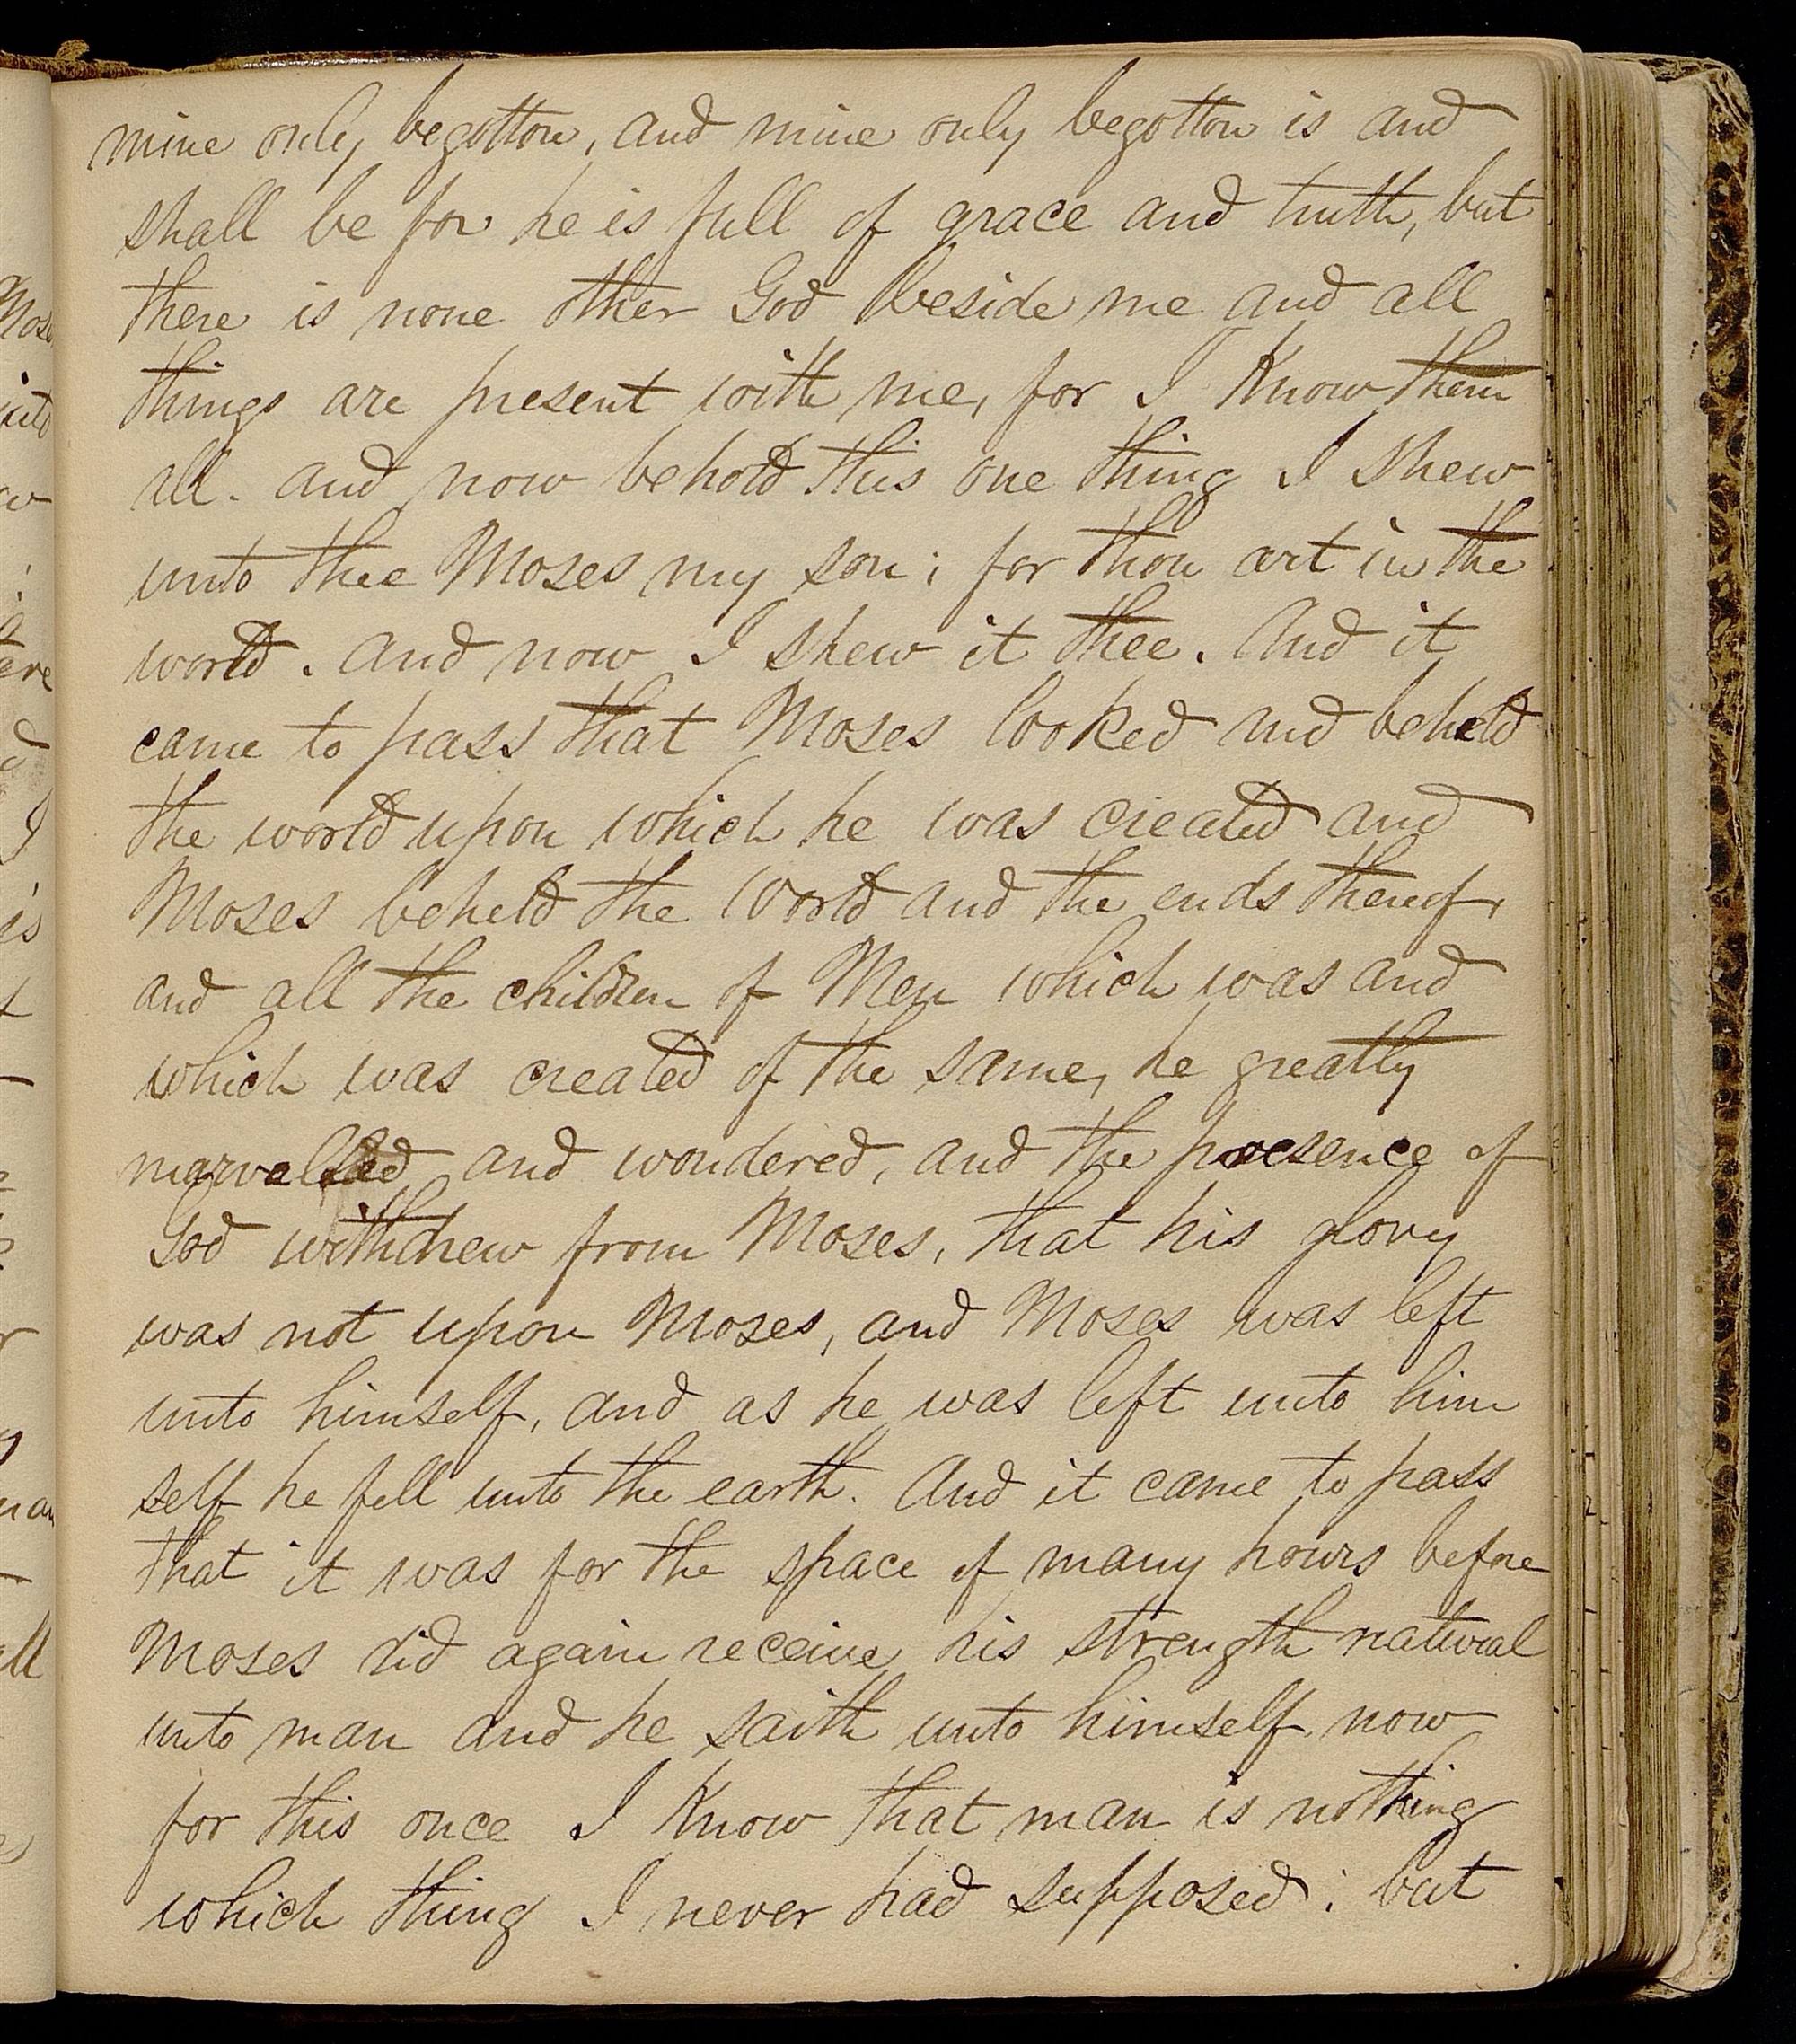 mine only begotton, and mine only begotton is and
shall be for he is full of grace and truth, but
there is none other God beside me and all
things are present with me, for I Know them
all. and now behold this one thing I shew
unto thee Moses my son; for thou art in the
world. and now I shew it thee. And it
came to pass that Moses looked and beheld
the world upon which he was created and
Moses beheld the World and the ends thereof,
and all the children of Men which was and
which was created of the same, he greatly
marvelled and wondered, and the presence of
God withdrew from Moses, that his glory
was not upon Moses, and Moses was left
unto himself, and as he was left unto him
self he fell unto the earth. And it came to pass
that it was for the space of many hours before
Moses did again receive his strength natural
unto man and he saith unto himself now
for this once I Know that man is nothing
which thing I never had supposed; but